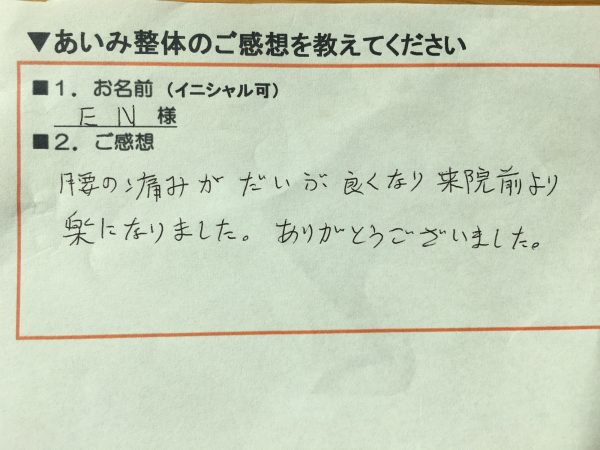 ▼あいみ整体のご感想を教えてください
■1．お名前（イニシャル可）
E N 様
■2．ご感想
腰の痛みがだいぶ良くなり来院前より
楽になりました。ありがとうございました。